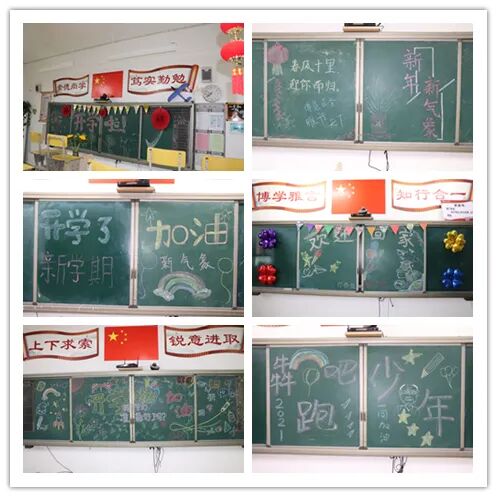 崇德尚学
笃实勤勉
开学啦!
春风十里
迎你而归。
新年
新气象
开学了
新学期
加油
新气象
博学雅言
知行合一
欢迎回家
上下求索
锐意进取
加油
犇跑吧
2021
少年